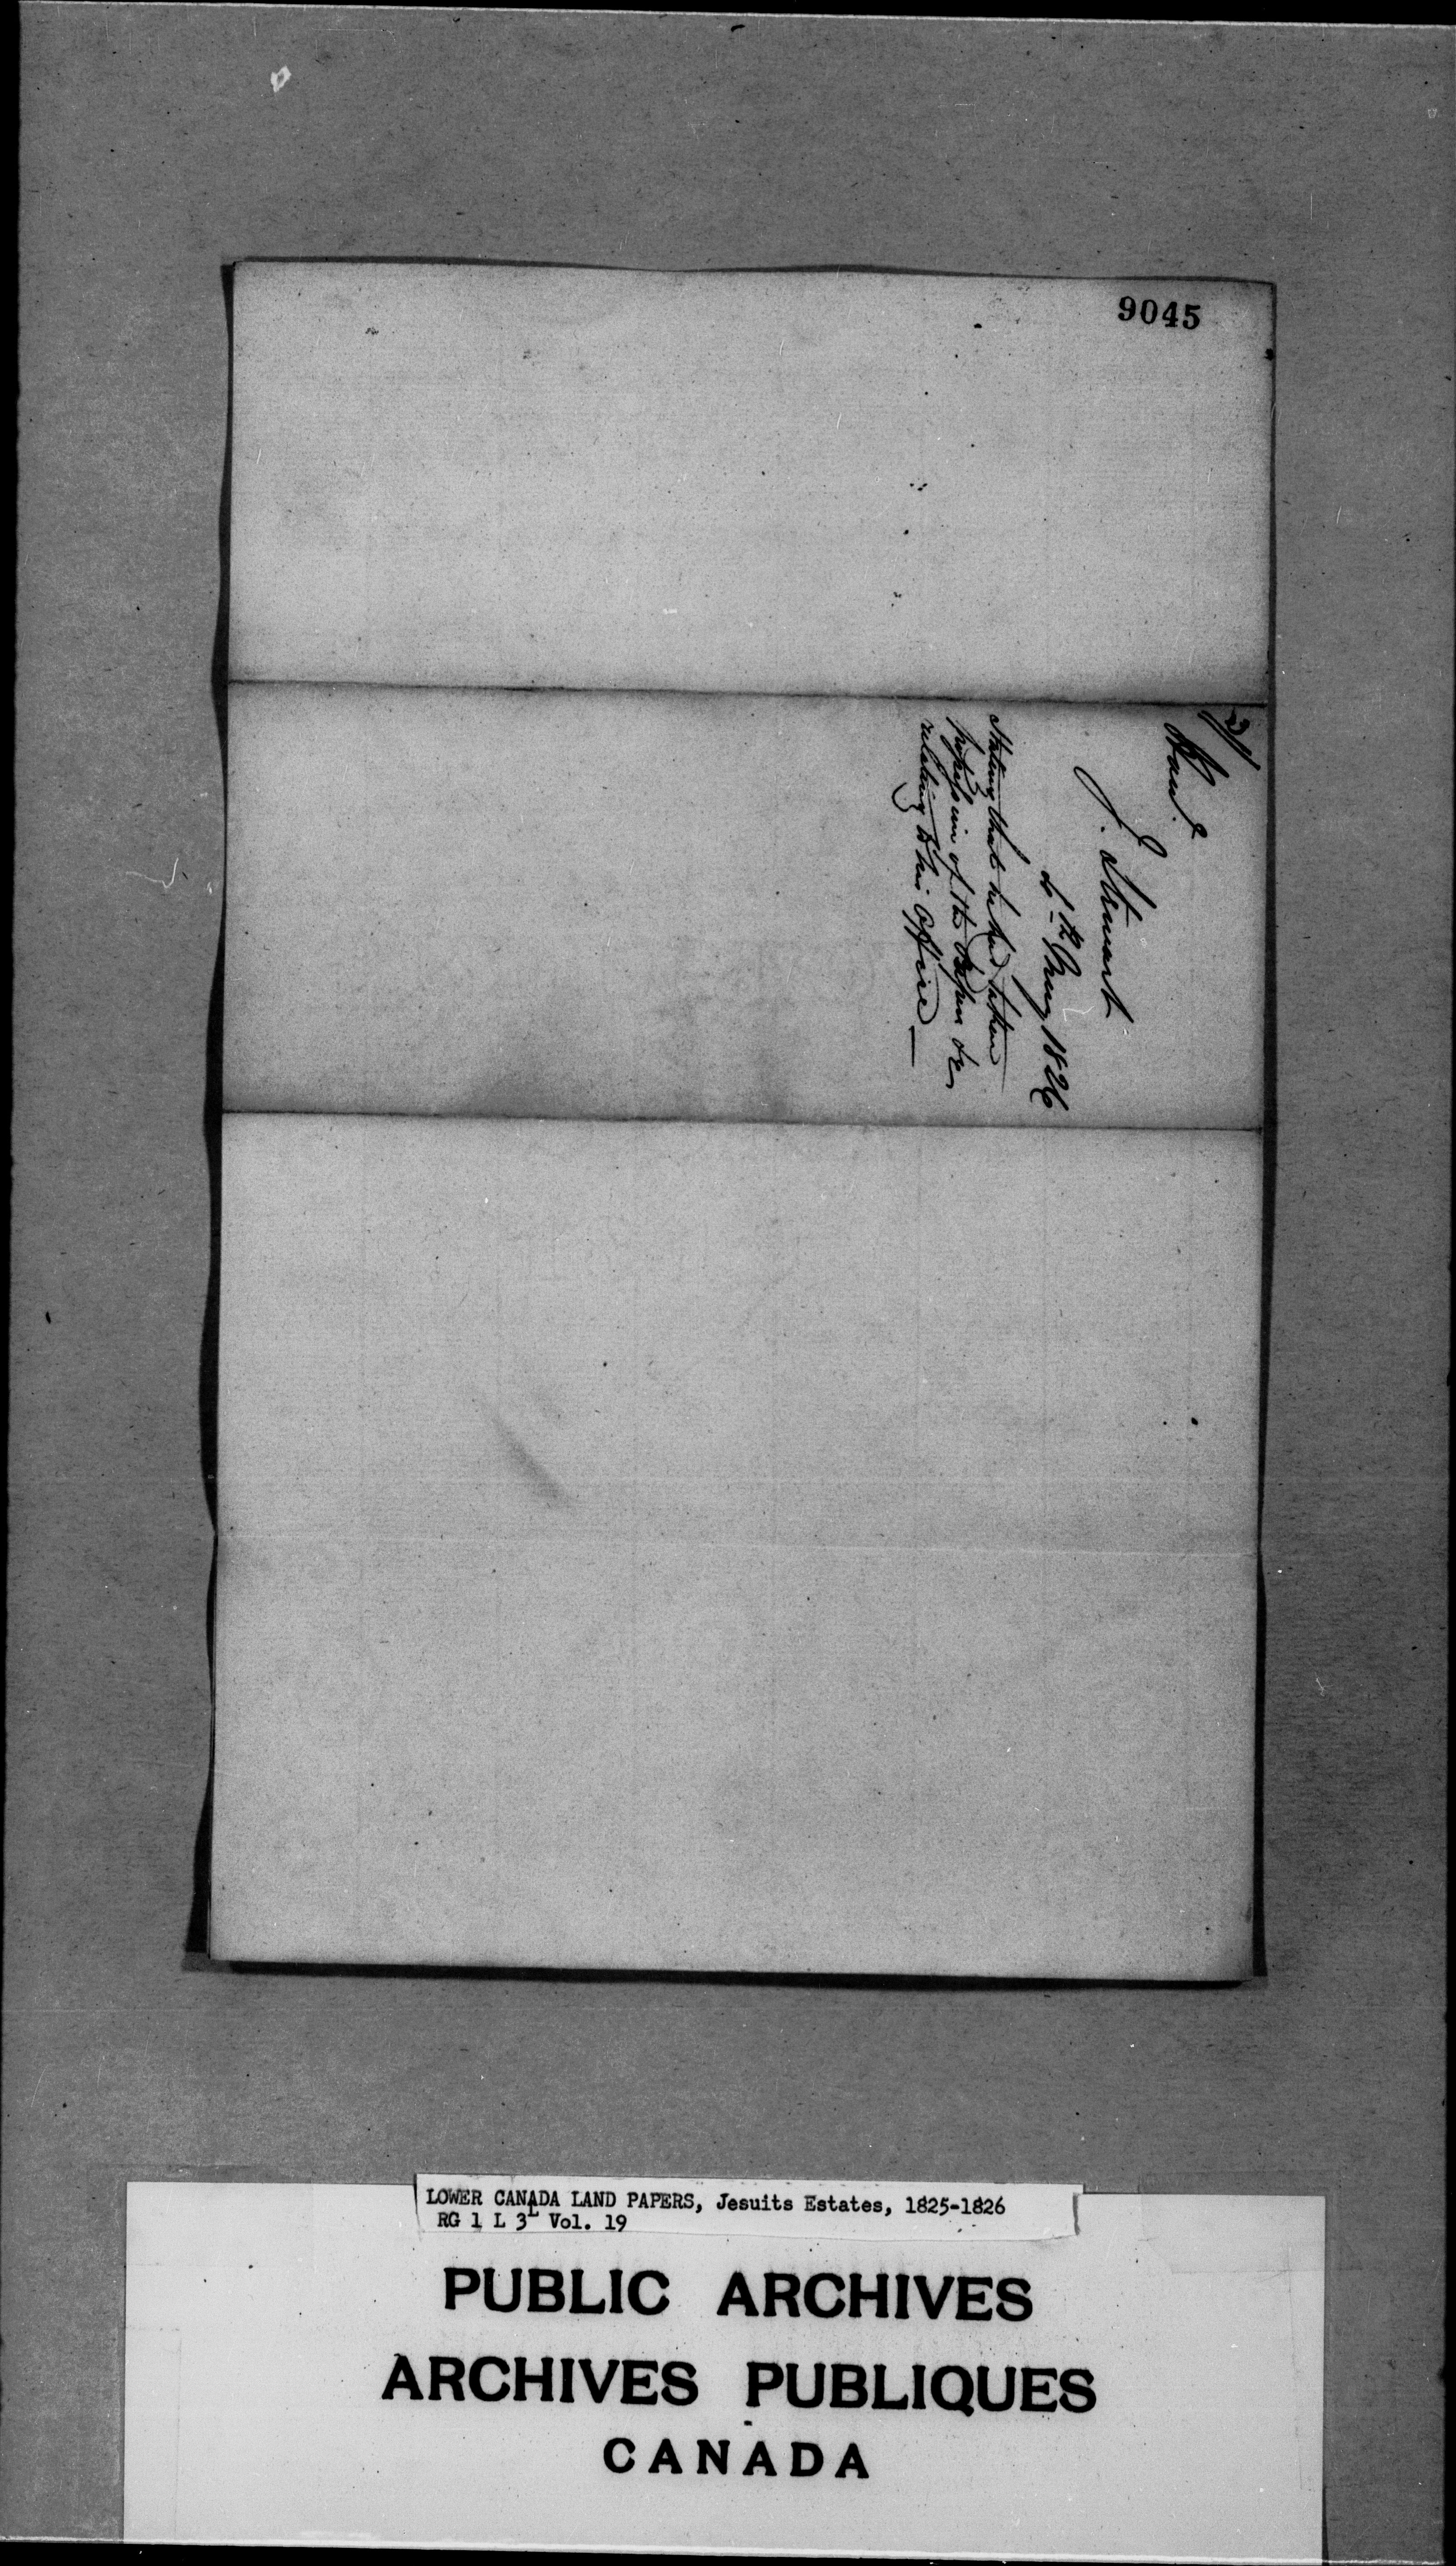 9045
J. Stewart
May 1826
Stating that he had taken
possession of the Papers &c
relating to his Office —
LOWER CANADA LAND PAPERS, Jesuits Estates, 1825-1826
RG 1 L 3L Vol. 19
PUBLIC ARCHIVES
ARCHIVES PUBLIQUES
CANADA